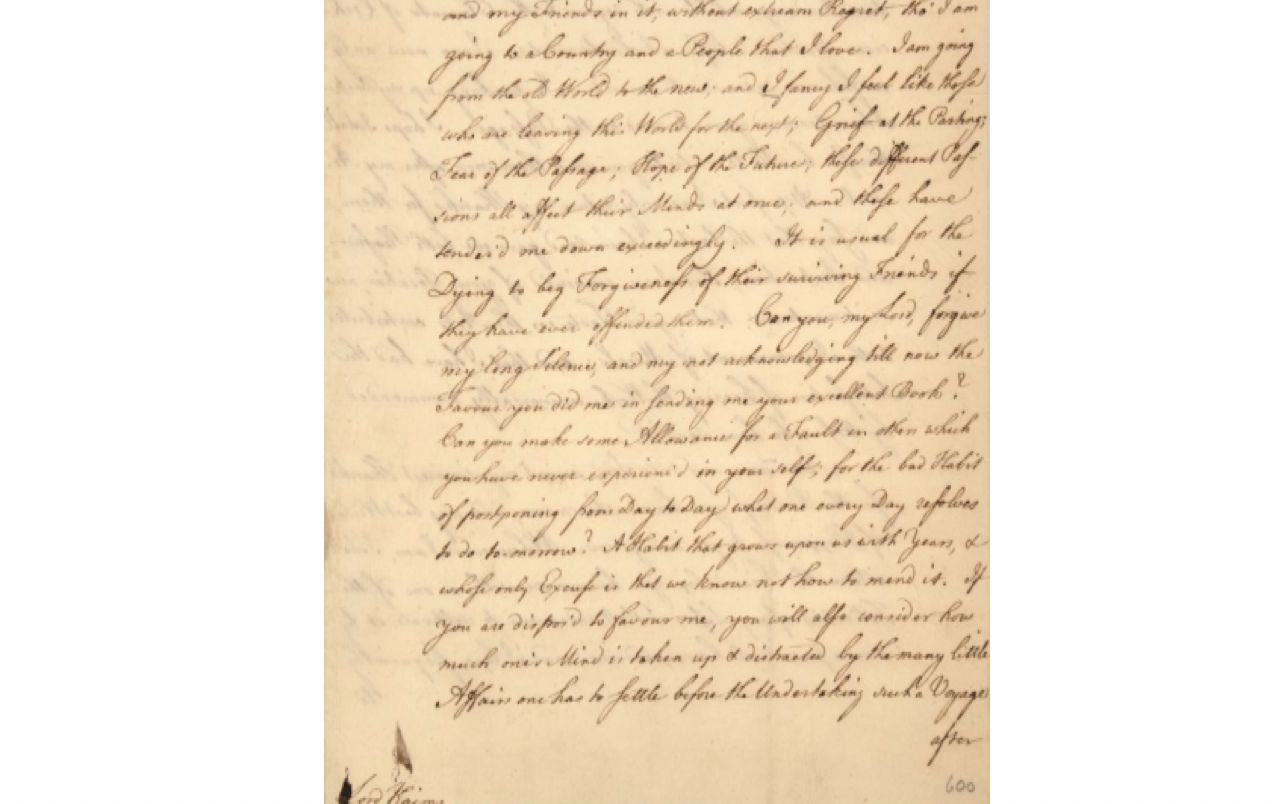 and my Friends in it, without extream Regret, tho' I am
going to a Country and a People that I love. I am going
from the old World to the new; and I fancy I feel like those
who are leaving this World for the next; Grief at the Parting;
Fear of the Passage; Hope of the Future; these different Pas-
sions all affect their Minds at once; and these have
tender'd me down exceedingly. It is usual for the
Dying to beg Forgiveness of their surviving Friends if
they have ever offended them. Can you, my Lord, forgive
my long Silence, and my not acknowledging till now the
Favour you did me in sending me your excellent Book?
Can you make some Allowance for a Fault in others which
you have never experienc'd in your self; for the bad Habit
of postponing from Day to Day what one every Day resolves
to do to-morrow? A Habit that grows upon us with Years, &
whose only Excuse is that we know not how to mend it. If
you are dispos'd to favour me, you will also consider how
much one's Mind is taken up & distracted by the many little
Affairs one has to settle before the Undertaking such a Voyage
after
Lord Kaims
600